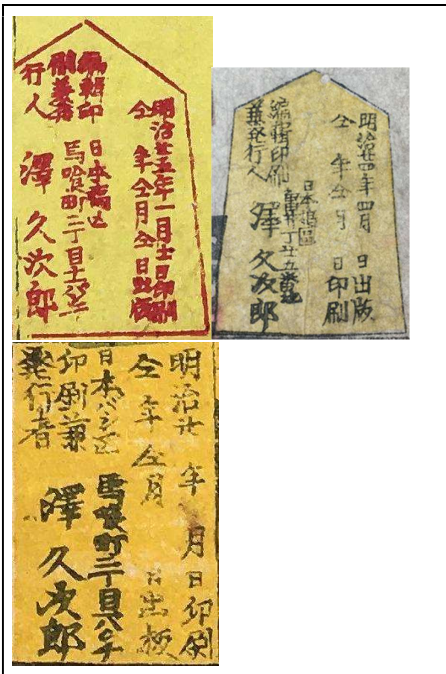 明治廿五年一月 日印刷
仝 年仝月仝日出版
日本橋区
馬喰町二丁目
編輯印
刷兼発
行人 澤 久次郎
明治廿四年四月 日出版
仝 年仝月 日印刷
日本橋區
亀井丁廿五番地
編輯印刷
兼発行人 澤 久次郎
明治廿 年 月 日印刷
仝 年仝月 日出板
日本バシ区 馬喰町二丁目八
印刷兼
発行者 澤 久次郎